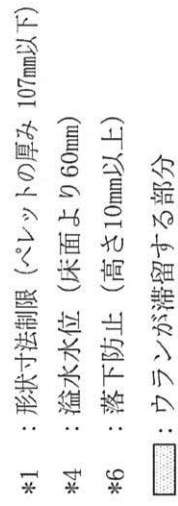 *1 : 形状寸法制限 (ペレットの厚み 107mm以下)
*4 : 溢水水位 (床面より60mm)
*6 : 落下防止 (高さ10mm以上)
: ウランが滞留する部分